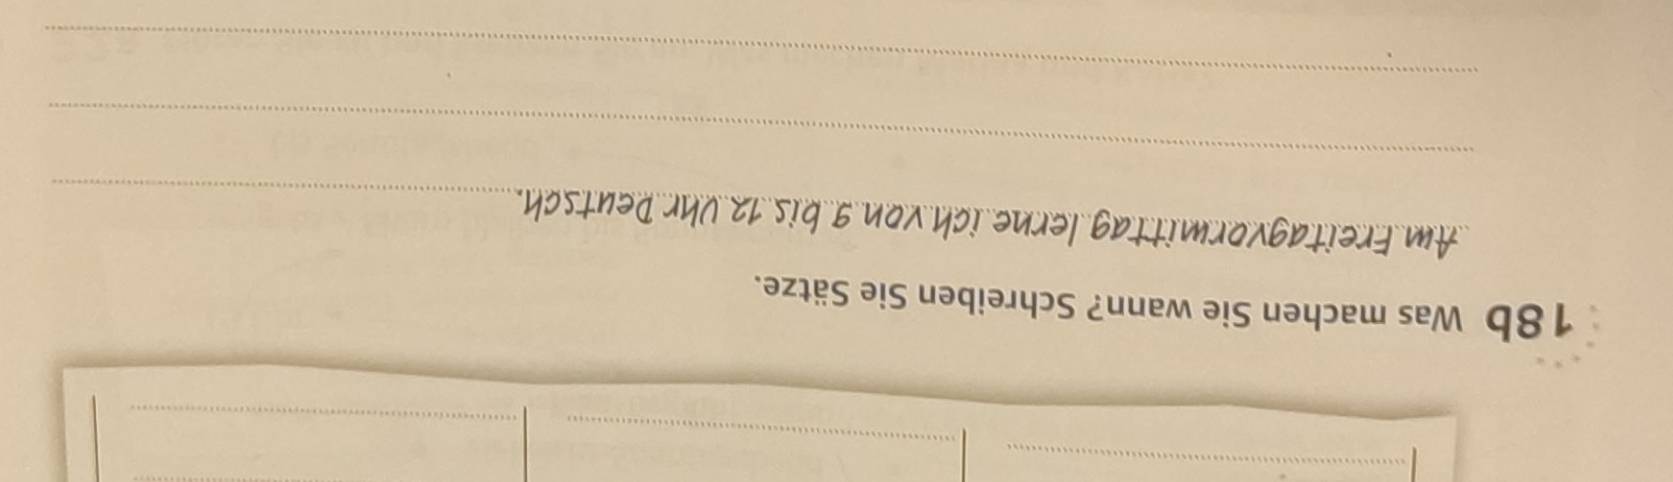 18b Was machen Sie wann? Schreiben Sie Sätze.
Am Freitagvormittag lerne ich von 9 bis 12 Uhr Deutsch.